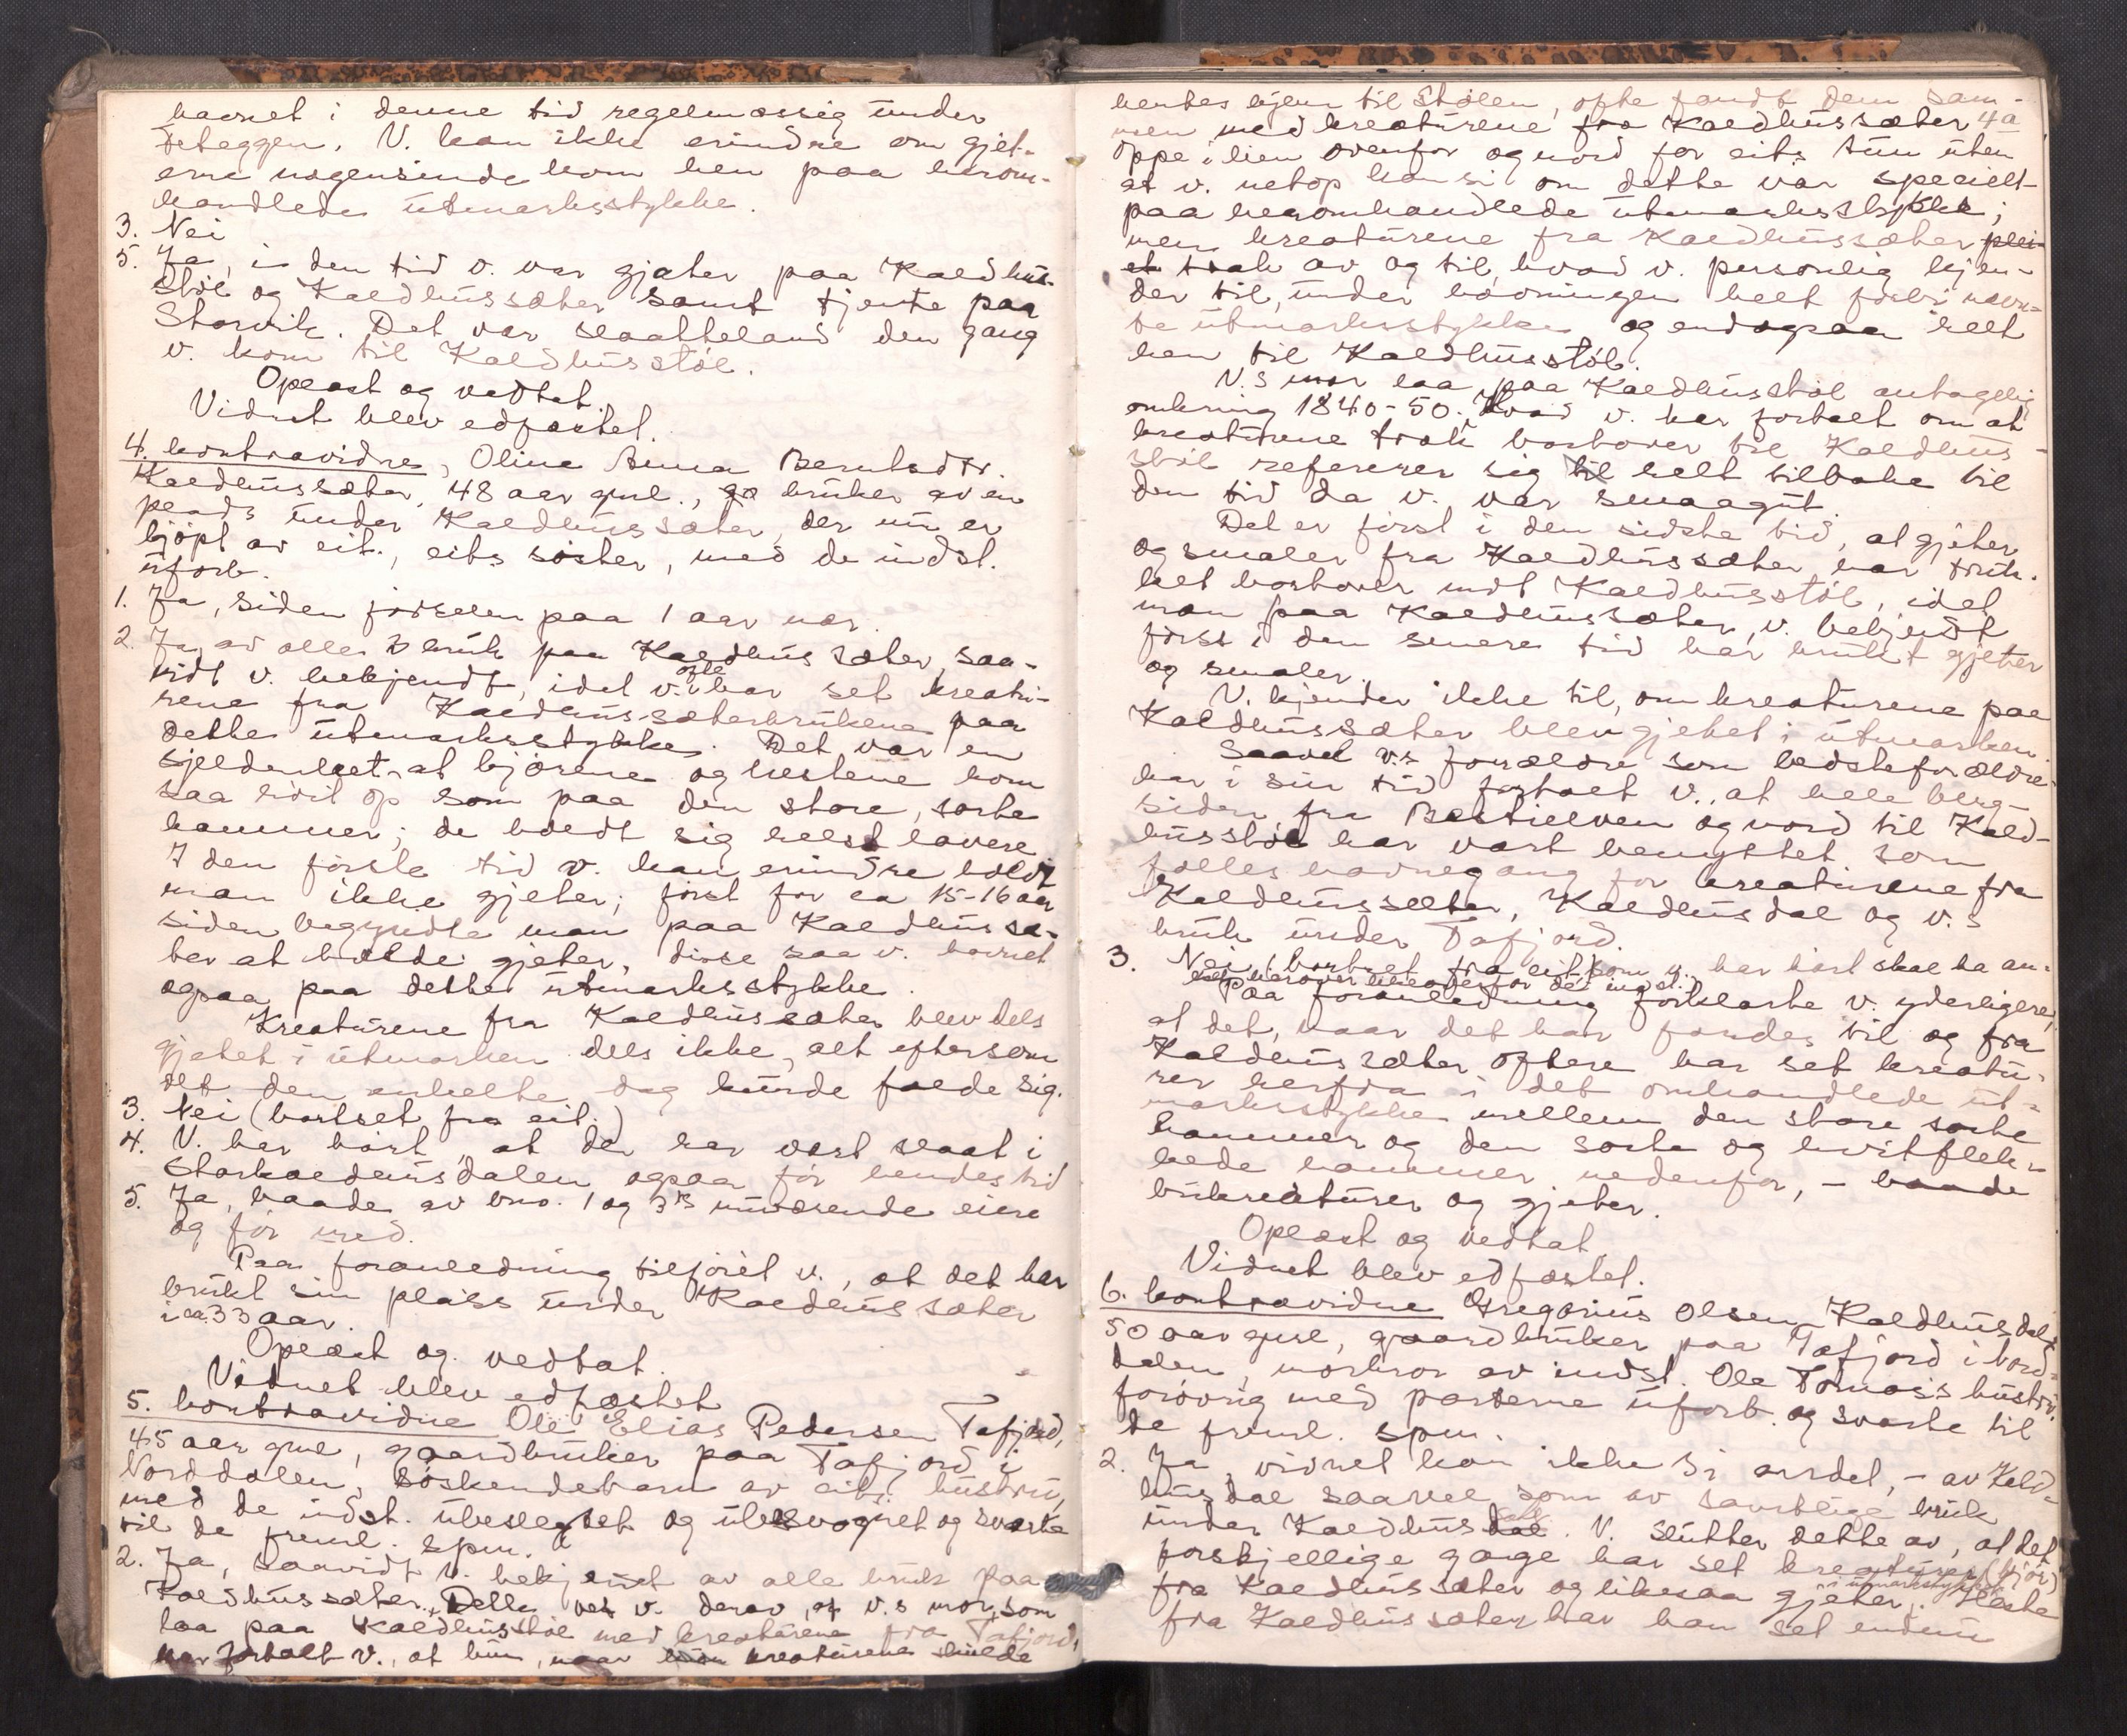 havnet i denne tid regelmæssig under
Heteggen. V. kan ikke erindre om gjet-
erne nogensinde kom hen paa herom-
handlede utmarksstykke.
3. Nei
5. Ja, i den tid v. var gjæter paa Kaldhus-
støl og Kaldhussæter samt tjente paa
Storvik. Det var slaatteland den gang
v. kom til Kaldhusstøl.
Oplæst og vedtat.
Vidnet blev edfæstet.
4. kontravidne, Oline Anna Berntsdtr.
Kaldhussæter, 48 aar gml., bruker av en
plads under Kaldhussæter, der nu er
kjøpt av cit., cits søster, med de indst.
uforb.
1. Ja, sidenførselen paa 1 aar nær.
2. Ja, av alle bruk paa Kaldhussæter, saa-
vidt v. bekjendt, idet v. ofte har set kreatu-
rene fra Kaldhus-sæterbrukene paa
dette utmarksstykke. Det var en
sjeldenhet at kjørene og hestene kom
saa vidt op som paa den store, sorte
hammer; de holdt sig helst lavere.
I den første tid v. kan erindre holdt
man ikke gjeter; først for ca 15-16 aar
siden begyndte man paa Kaldhussæ-
ter at holde gjeter, disse saa v. havnet
ogsaa paa dette utmarksstykke.
Kreaturene fra Kaldhussæter blev dels
gjetet i utmarken dels ikke, alt eftersom
det den enkelte dag kunde falde sig.
3. Nei (bortset fra cit.)
4. V. har hørt, at der har vært slaat i
Storkaldhusdalen ogsaa før hendes tid
5. Ja, baade av bno. 1 og 3's nuværende eiere
og før med.
Paa foranledning tilføiet v., at det har
brukt sin plass under Kaldhussæter
i ca. 33 aar.
Oplæst og vedtat.
Vidnet blev edfæstet
5. kontravidne Ole Elias Pedersen Tafjord,
45 aar gml, gaardbruker paa Tafjord i
Norddalen, søskendebarn av cits hustru,
med de indst. ubeslegtet og ubesvogret og svarte
til de freml. spm.
2. Ja, saavidt v. bekjendt av alle bruk paa
Kaldhussæter. Dette vet v. derav, at v.s mor, som
laa paa Kaldhusstøl med kreaturene fra Tafjord,
har fortalt v., at hun, naar kreaturene skulde
hentes hjem til stølen, ofte fandt dem sam-
4a
men med kreaturene fra Kaldhussæter
oppe i lien ovenfor og nord for cits tun uten
at v. netop kan si om dette var specielt
paa heromhandlede utmarksstykke;
men kreaturene fra Kaldhussæter plei-
et trak av og til, hvad v. personlig kjen-
der til, under havningen helt forbi nævn-
te utmarksstykke og endogsaa helt
hen til Kaldhusstøl.
V.s mor laa paa Kaldhusstøl antagelig
omkring 1840-50. Hvad v. har fortalt om at
kreaturene trak bortover til Kaldhus-
støl refererer sig til helt tilbake til
den tid da v. var smaagut.
Det er først i den sidste tid, at gjeter
og smaler fra Kaldhussæter har truk-
ket bortover mot Kaldhusstøl, idet
man paa Kaldhussæter, v. bekjendt
først i den senere tid har brukt gjeter
og smaler.
V. kjender ikke til, om kreaturene paa
Kaldhussæter blev gjetet i utmarken.
Saavel v.s forældre som bedsteforældre
har i sin tid fortalt v., at hele berg-
siden fra og nord til Kald-
husstøl har vært benyttet som
fælles havnegang for kreaturene fra
Kaldhussæter, Kaldhusdal og v.s
bruk under Tafjord.
3. Nei, bortset fra cit. som v. har hørt skal ha an-
Paa foranledning forklarte v. yderligere,
at det, naar det har fandes til og fra
Kaldhussæter oftere har set kreatu-
rer herfra i det omhandlede ut-
marksstykke mellem den store sorte
hammer og den sorte og hvitflek-
kede hammer nedenfor, - baade
bukreaturer og gjeter.
Oplæst og vedtat.
Vidnet blev edfæstet.
6. kontravidne Gregorius Olsen Kaldhusdal,
50 aar gml, gaardbruker paa Tafjord i Nord-
dalen, morbror av indst. Ole Tomas's hustru,
forøvrig med parterne uforb. og svarte til
de freml. spm.
2. Ja, vidnet kan ikke si andet, - av Kald-
husdal saavel som av samtlige bruk
under Kaldhusdal. V. slutter dette av, at det
forskjellige gange har set kreaturer (kjør)
fra Kaldhussæter og likesaa gjeter i utmarksstykket. Heste
fra Kaldhussæter har han set endnu